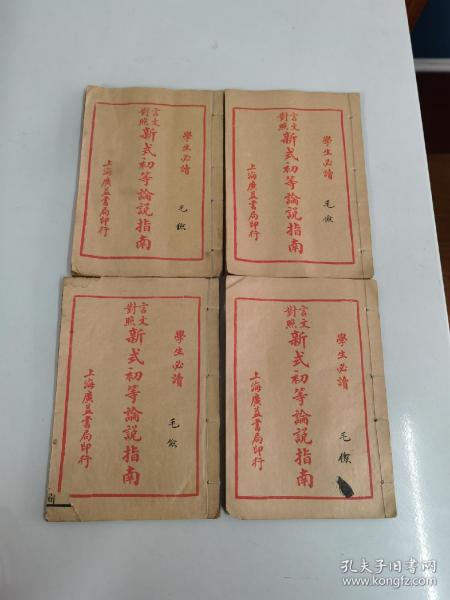 學生必讀
毛
言文對照
新式初等論說指南
上海廣益書局印行
學生必讀
毛
言文對照
新式初等論說指南
上海廣益書局印行
學生必讀
毛
言文對照
新式初等論說指南
上海廣益書局印行
學生必讀
毛
言文對照
新式初等論說指南
上海廣益書局印行
孔夫子旧书网
www.kongfz.com